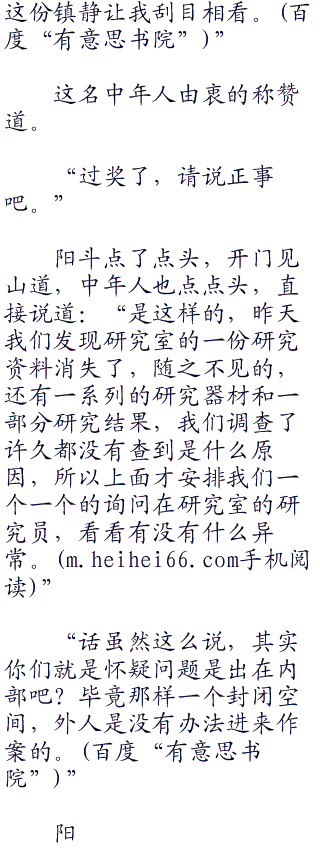 这份镇静让我刮目相看。(百
度“有意思书院”)”
这名中年人由衷的称赞
道。
“过奖了，请说正事
吧。”
阳斗点了点头，开门见
山道，中年人也点点头，直
接说道：“是这样的，昨天
我们发现研究室的一份研究
资料消失了，随之不见的，
还有一系列的研究器材和一
部分研究结果，我们调查了
许久都没有查到是什么原
因，所以上面才安排我们一
个一个的询问在研究室的研
究员，看看有没有什么异
常。(m.heihei66.com手机阅
读)”
“话虽然这么说，其实
你们就是怀疑问题是出在内
部吧？毕竟那样一个封闭空
间，外人是没有办法进来作
案的。(百度“有意思书
院”)”
阳